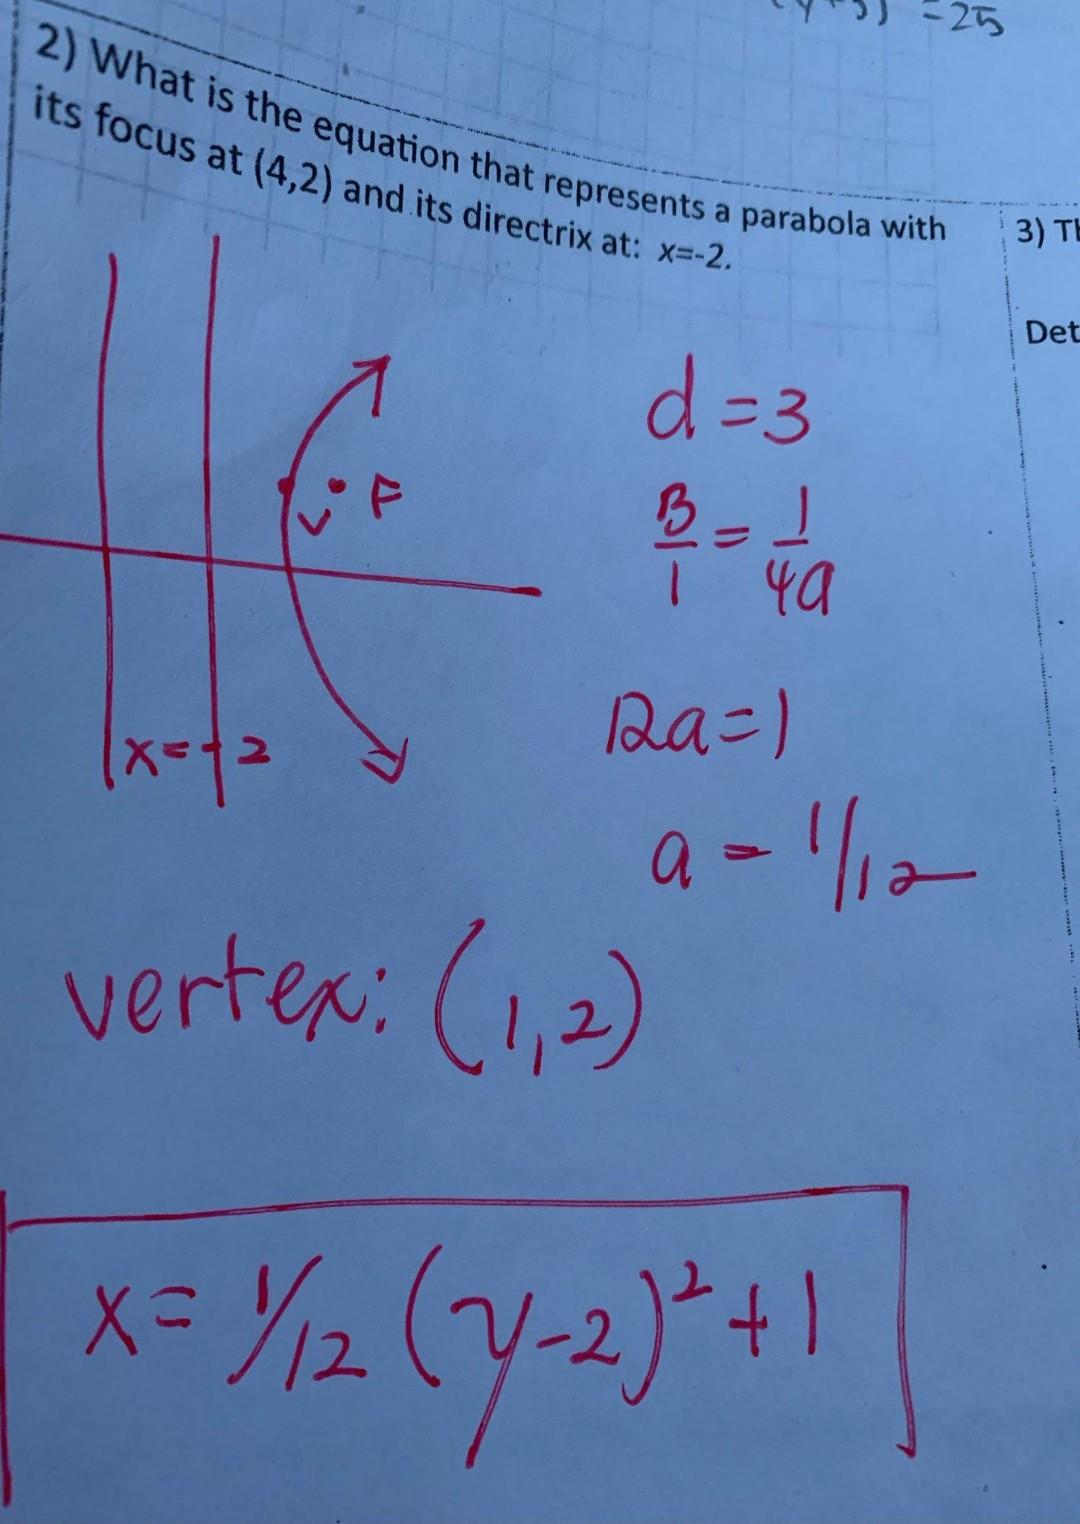 (y+3) = 25
2) What is the equation that represents a parabola with
its focus at (4,2) and its directrix at: x=-2.
3) Th
Det
d = 3
3/1 = 1/4a
V F
12a = 1
x = -2
a = 1/12
vertex: (1,2)
x = 1/12 (y-2)² + 1